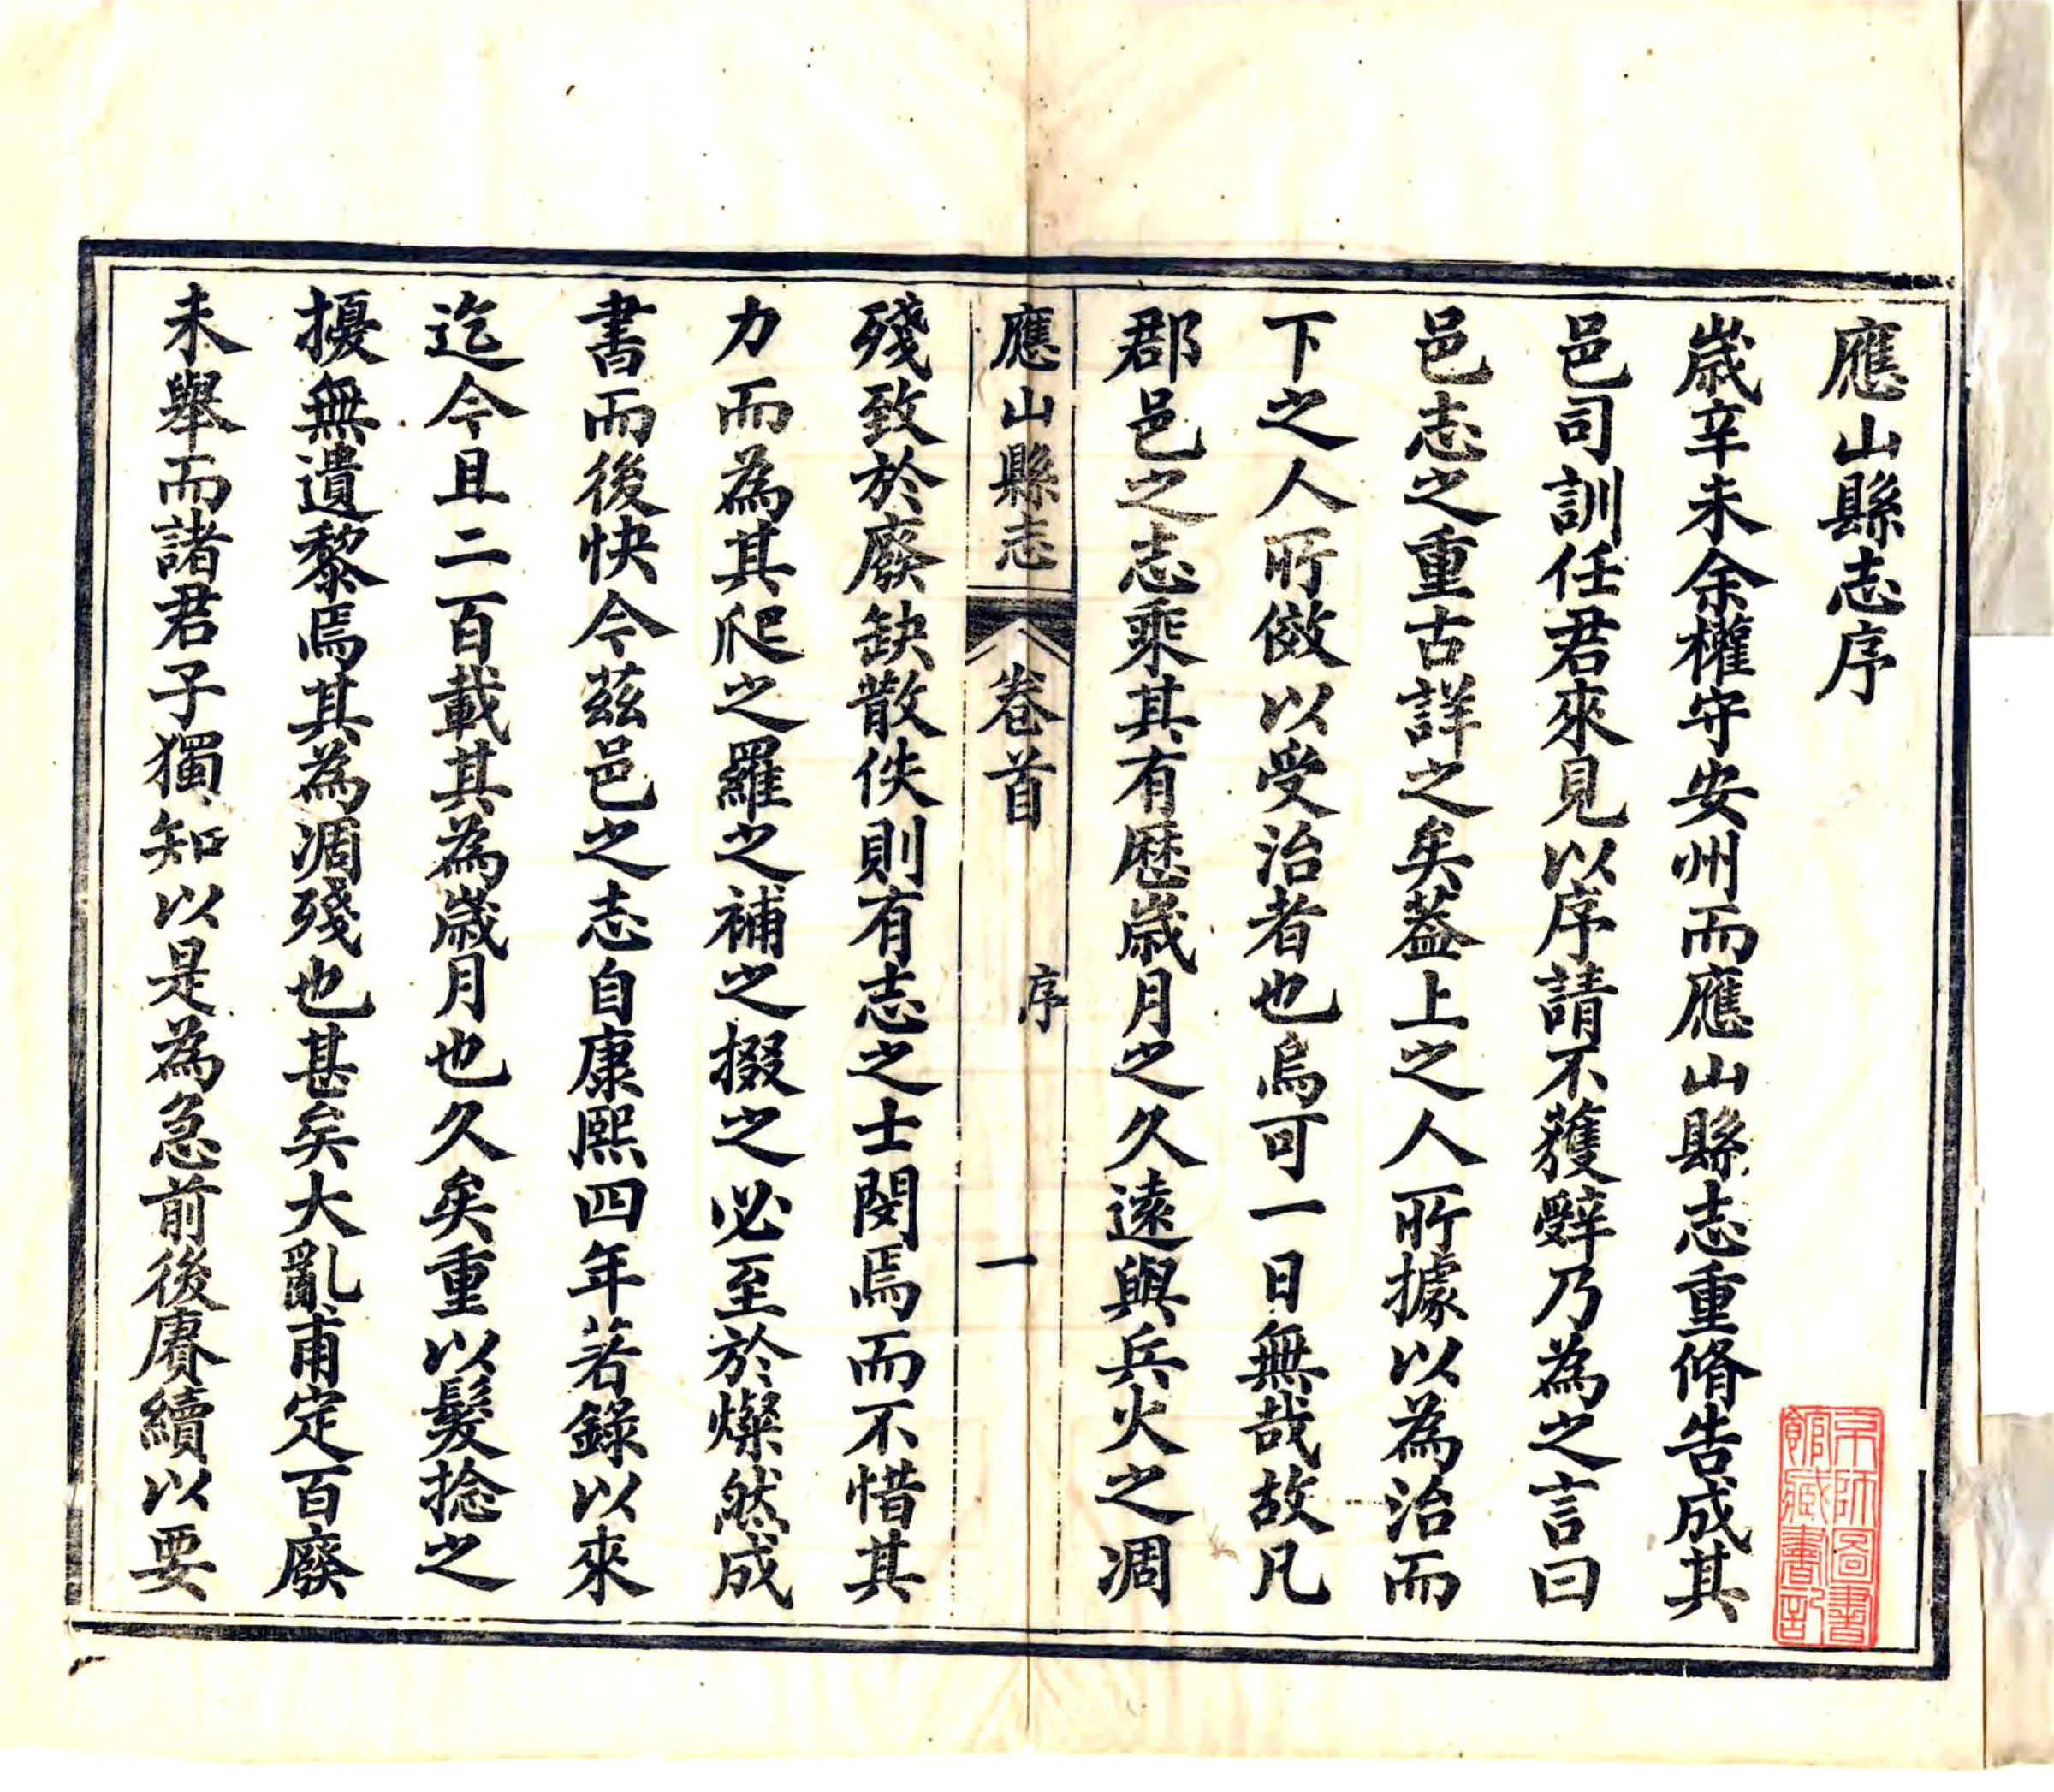 應山縣志序
歲辛未余權守安州而應山縣志重脩告成其
邑司訓任君來見以序請不獲辭乃為之言曰
邑志之重古詳之矣葢上之人所據以為治而
下之人所倣以受治者也烏可一日無哉故凡
郡邑之志乘其有歷歲月之久遠與兵火之凋
應山縣志 卷首 序 一
殘致於廢缺散佚則有志之士閔焉而不惜其
力而為其爬之羅之補之掇之必至於燦然成
書而後快今茲邑之志自康熙四年著錄以來
迄今且二百載其為歲月也久矣重以髮捻之
擾無遺黎焉其為凋殘也甚矣大亂甫定百廢
未舉而諸君子獨知以是為急前後賡續以要
京師圖書
館藏書記